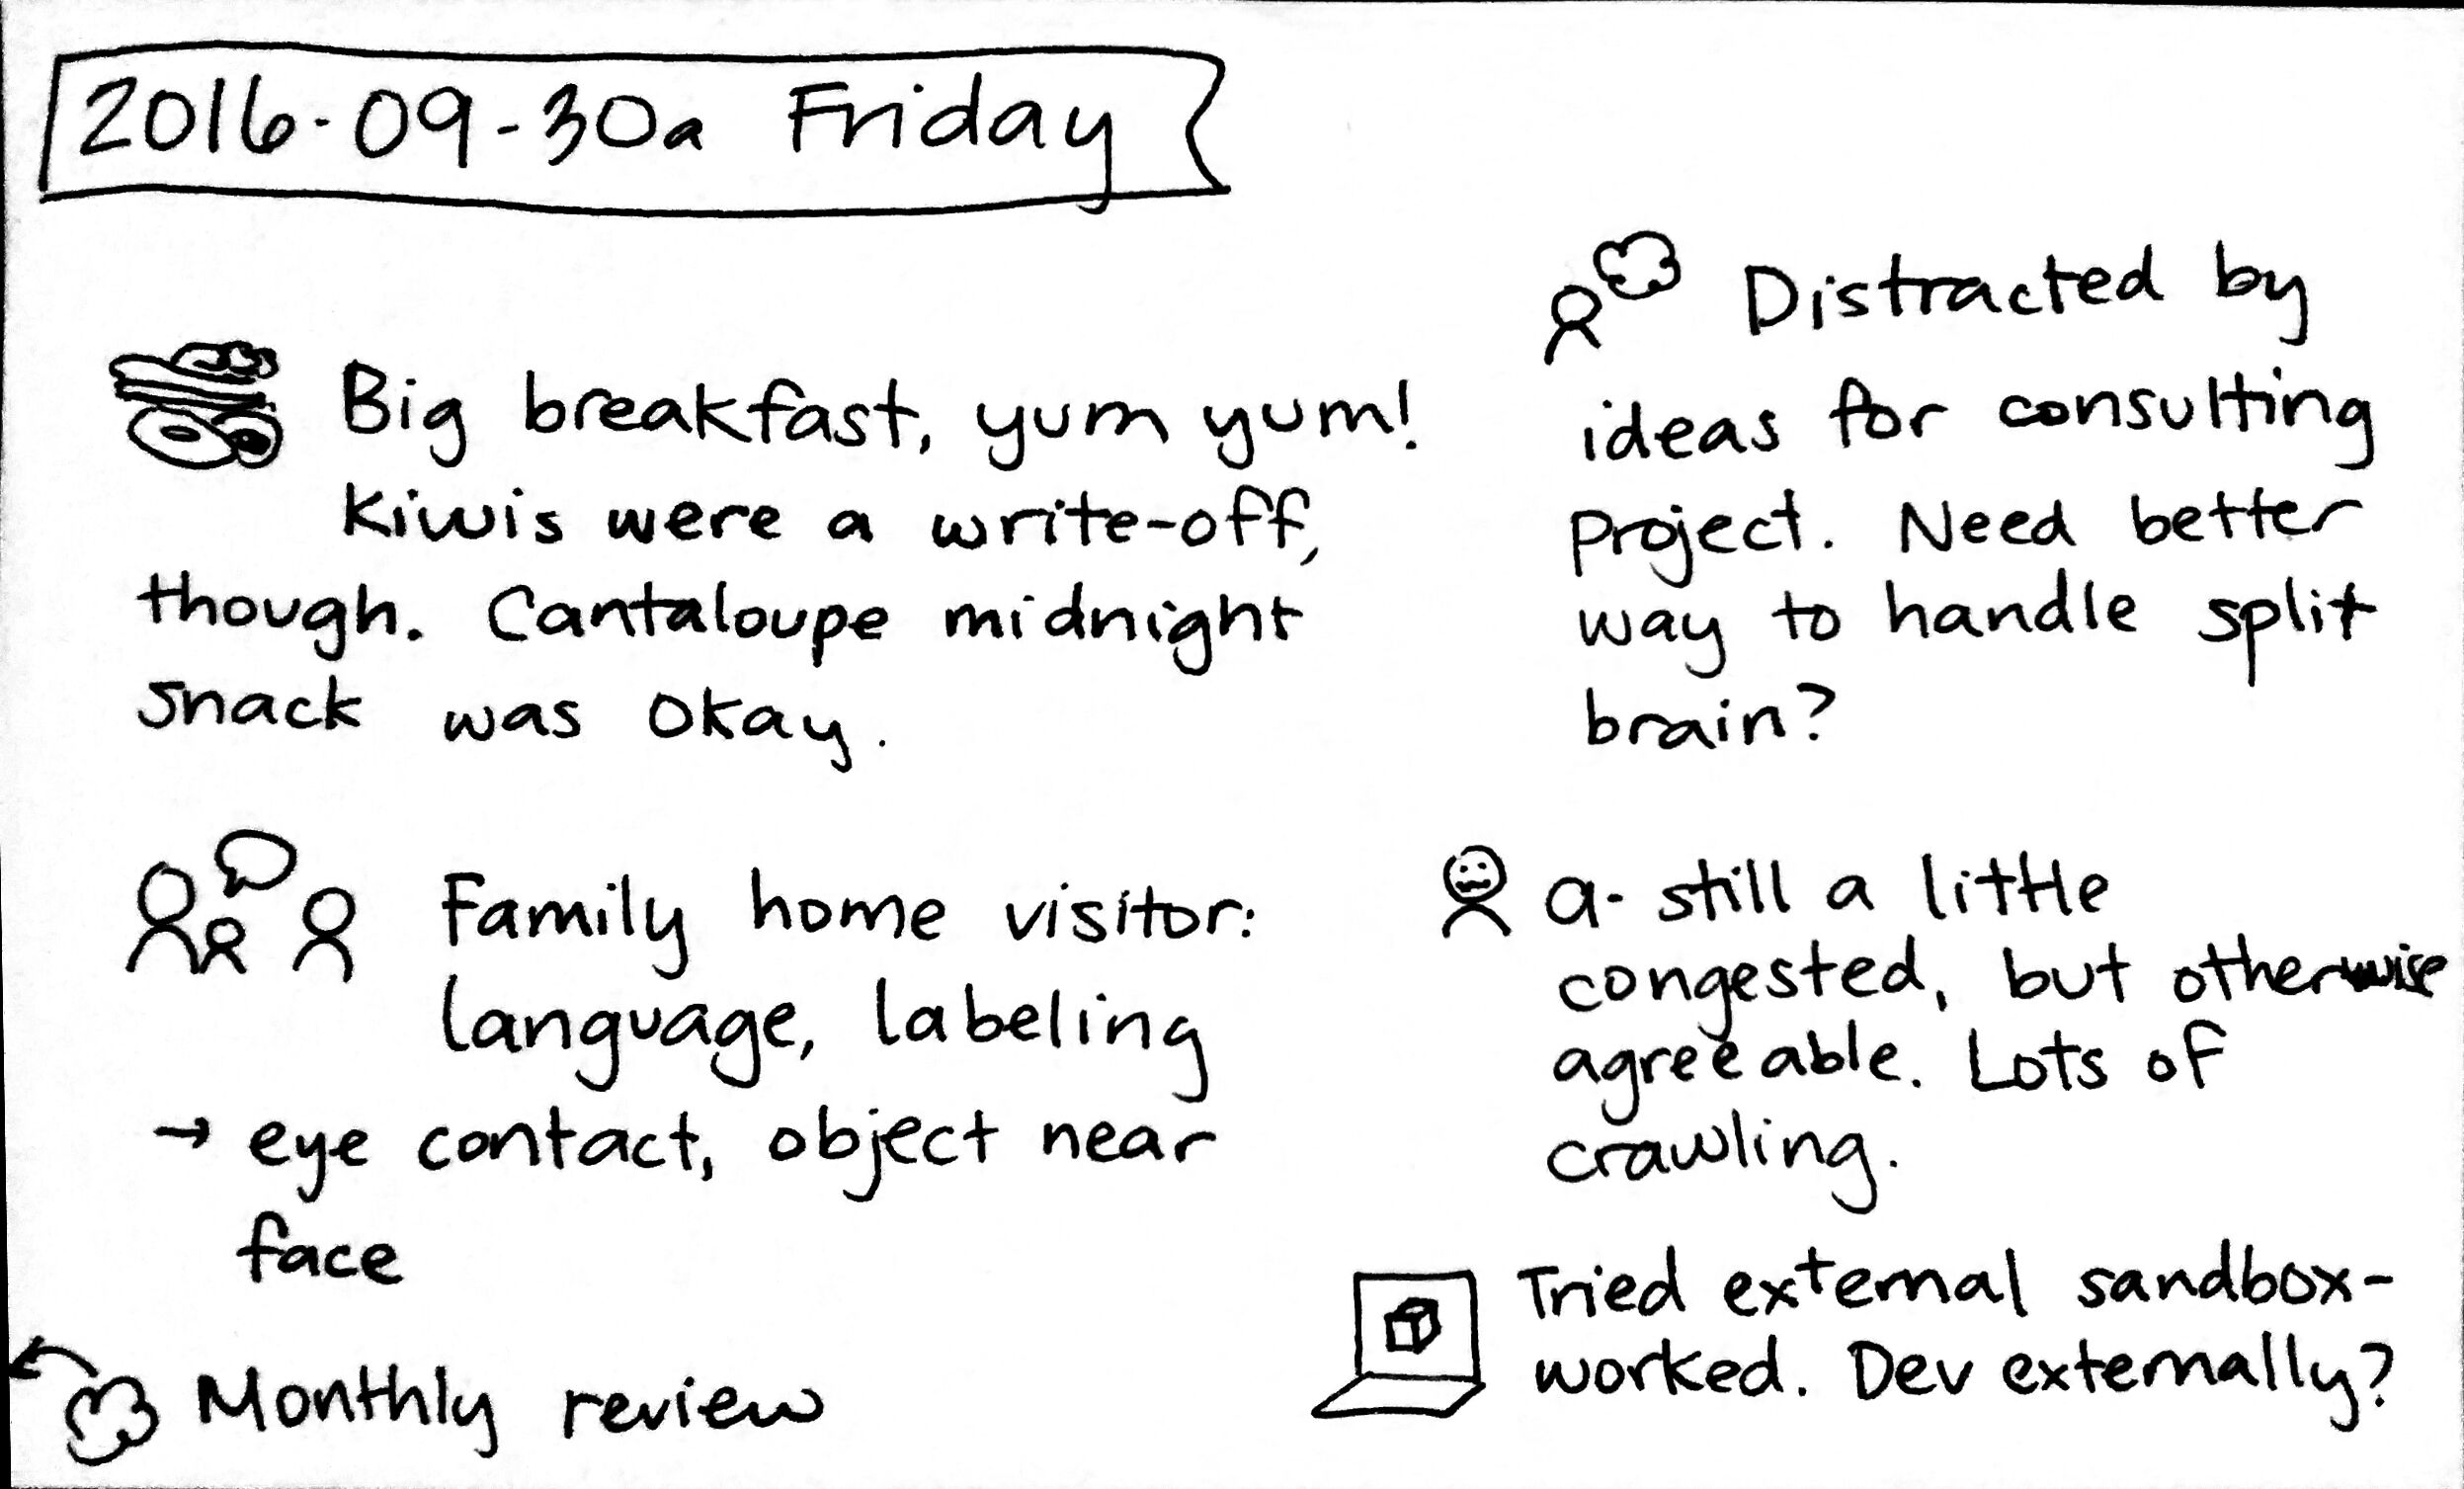 2016-09-30a Friday
Big breakfast, yum yum!
Kiwis were a write-off,
though. Cantaloupe midnight
snack was okay.
Family home visitor:
language, labeling
→ eye contact, object near
face
Monthly review
Distracted by
ideas for consulting
project. Need better
way to handle split
brain?
a- still a little
congested, but otherwise
agreeable. Lots of
crawling.
Tried external sandbox-
worked. Dev externally?